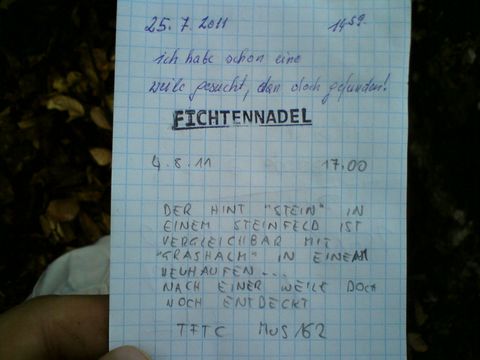 25.7.2011 14⁵⁹
ich habe schon eine
weile gesucht, dan doch gefunden!
FICHTENNADEL
4.8.11 17.00
DER HINT "STEIN" IN
EINEM STEINFELD IST
VERGLEICHBAR MIT
"GRASHALM" IN EINEM
HEUHAUFEN...
NACH EINER WEILE DOCH
NOCH ENTDECKT
TFTC MUS162